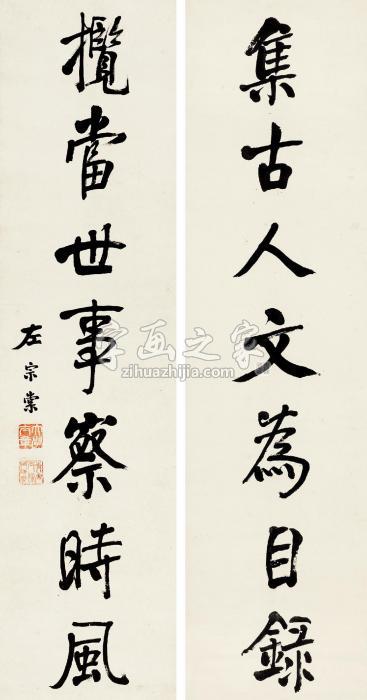 集古人文為目錄
攬當世事察時風
左宗棠
字画之家
zihuazhijia.com